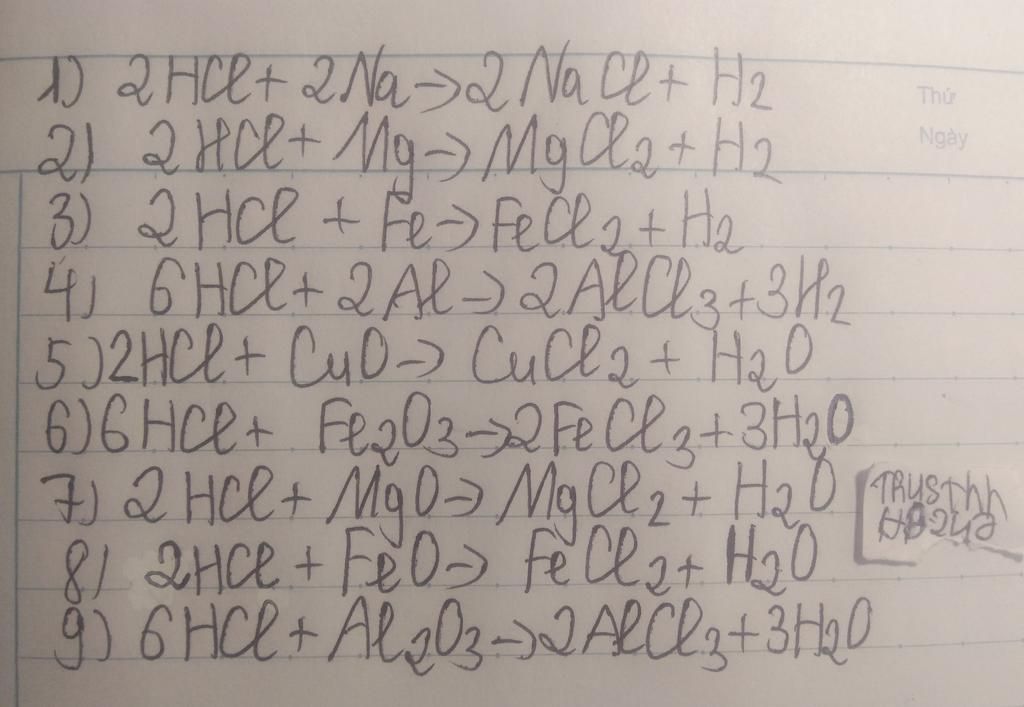 1) 2HCl + 2Na → 2NaCl + H2
2) 2HCl + Mg → MgCl2 + H2
3) 2HCl + Fe → FeCl2 + H2
4) 6HCl + 2Al → 2AlCl3 + 3H2
5) 2HCl + CuO → CuCl2 + H2O
6) 6HCl + Fe2O3 → 2FeCl3 + 3H2O
7) 2HCl + MgO → MgCl2 + H2O
8) 2HCl + FeO → FeCl2 + H2O
9) 6HCl + Al2O3 → 2AlCl3 + 3H2O
Thứ
Ngày